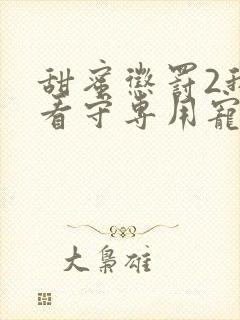 甜蜜惩罚2我
看守专用宠
大枭雄